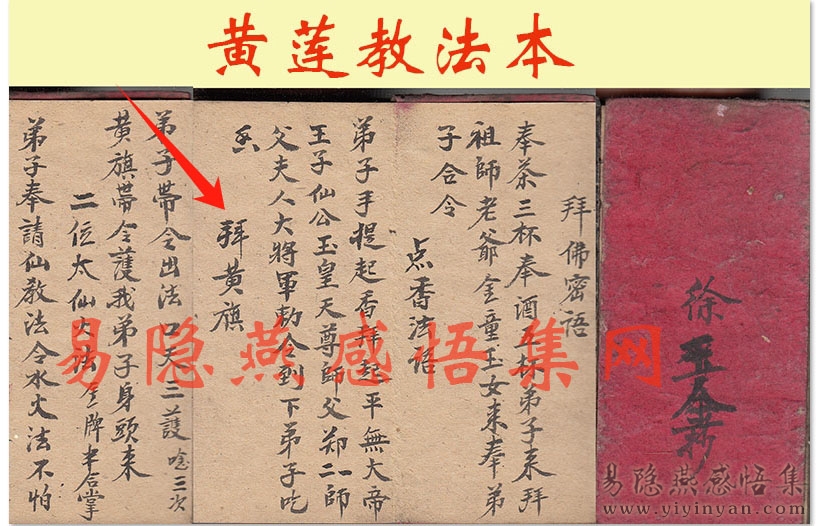 黄莲教法本
徐
拜佛密语
奉茶三杯奉酒五杯弟子来拜
祖師老爺金童玉女来奉弟
子合令
点香法语
弟子手提起香拜起平無大帝
王子仙公玉皇天尊師父郑二師
父夫人大將軍勅令到下弟子吃
拜黄旗
弟子帶令出法口天三護唸三次
黄旗帶令護我弟子身頭来
二位太仙大法金牌半合掌
弟子奉請仙教法令水火法不怕
易隐燕感悟集网
易隐燕感悟集
www.yiyinyan.com